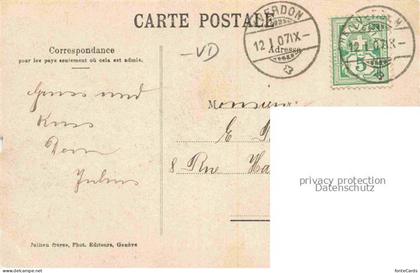 CARTE POSTALE
Correspondance
pour les pays seulement où cela est admis.
-VD
YVERDON
12 I 07 IX-
Adresse
YVERDON
12 I 07 IX-
5
Gruss und
Kuss
Dein
Julius
Monsieur
E
8 Rue
privacy protection
Datenschutz
Jullien frères, Phot. Editeurs, Genève